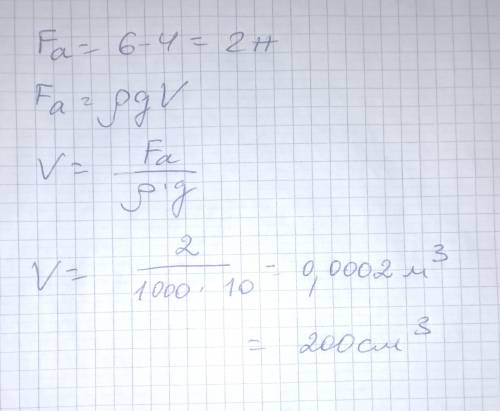 Fa = 6-4 = 2н
Fa = ρgV
V = Fa / ρ·g
V = 2 / 1000·10 = 0,0002 м³
= 200 см³